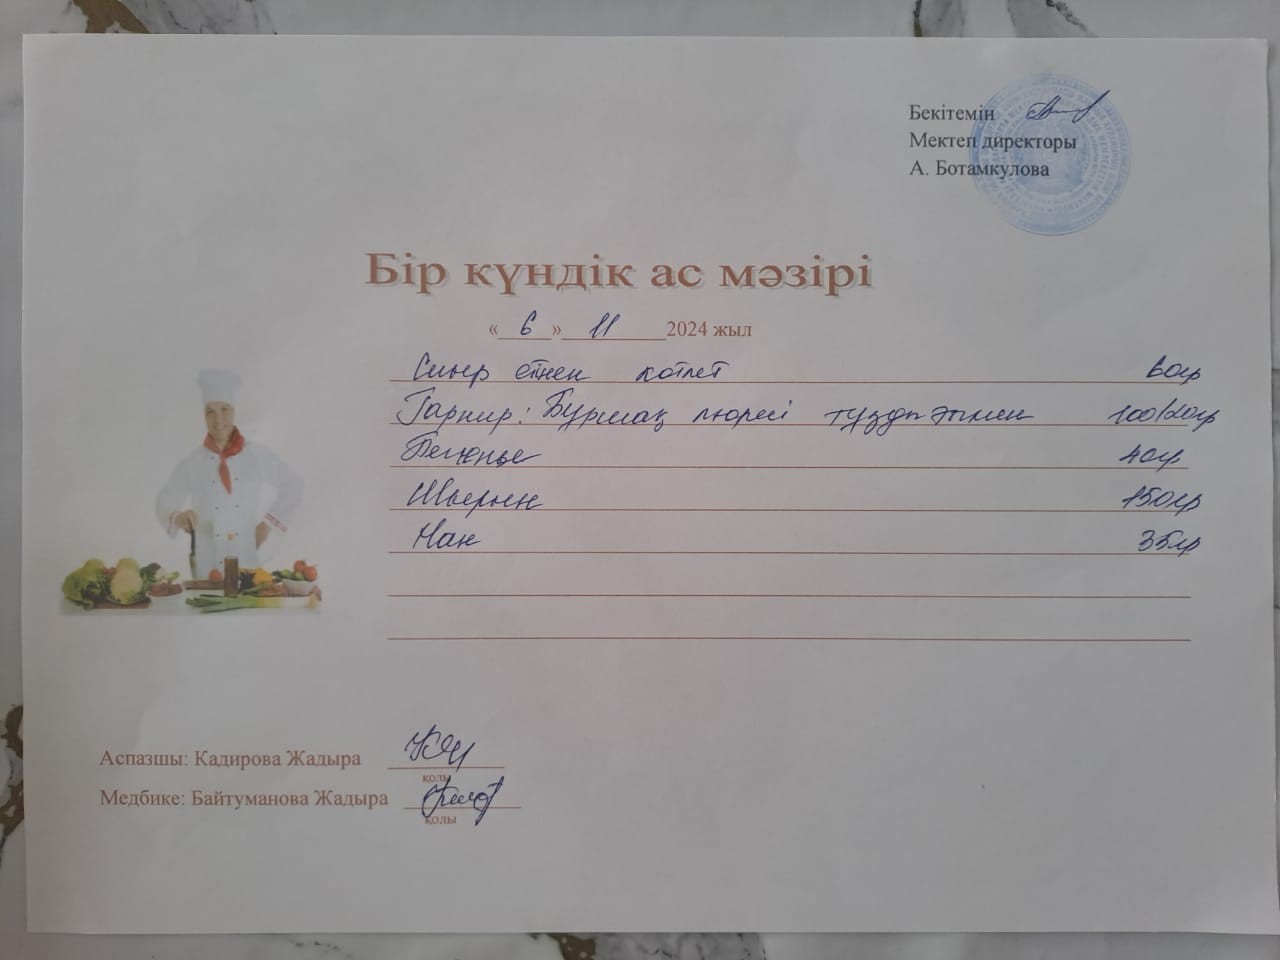 Бекітемін
Мектеп директоры
А. Ботамкулова
Бір күндік ас мәзірі
« 6 » 11 2024 жыл
Сиыр етінен котлет 60гр
Гарнир: Бұршақ пюресі тұздықпен 100/20гр
Печенье 40гр
Шырын 150гр
Нан 35гр
Аспазшы: Кадирова Жадыра
қолы
Медбике: Байтуманова Жадыра
қолы